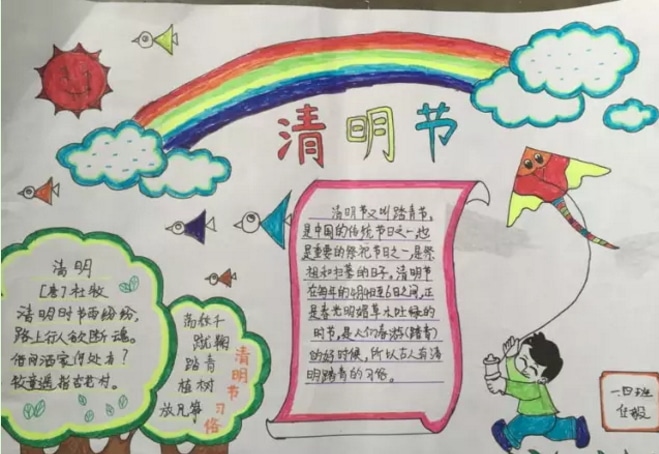 清明节
清明
[唐]杜牧
清明时节雨纷纷,
路上行人欲断魂。
借问酒家何处有?
牧童遥指杏花村。
荡秋千
蹴鞠
踏青
植树
放风筝
清明节习俗
清明节又叫踏青节,
是中国的传统节日之一,也
是重要的祭祀节日之一,是祭
祖和扫墓的日子。清明节
在每年的4月4日至6日之间,正
是春光明媚草木吐绿的
时节,是人们春游(踏青)
的好时候,所以古人有清
明踏青的习俗。
一四班